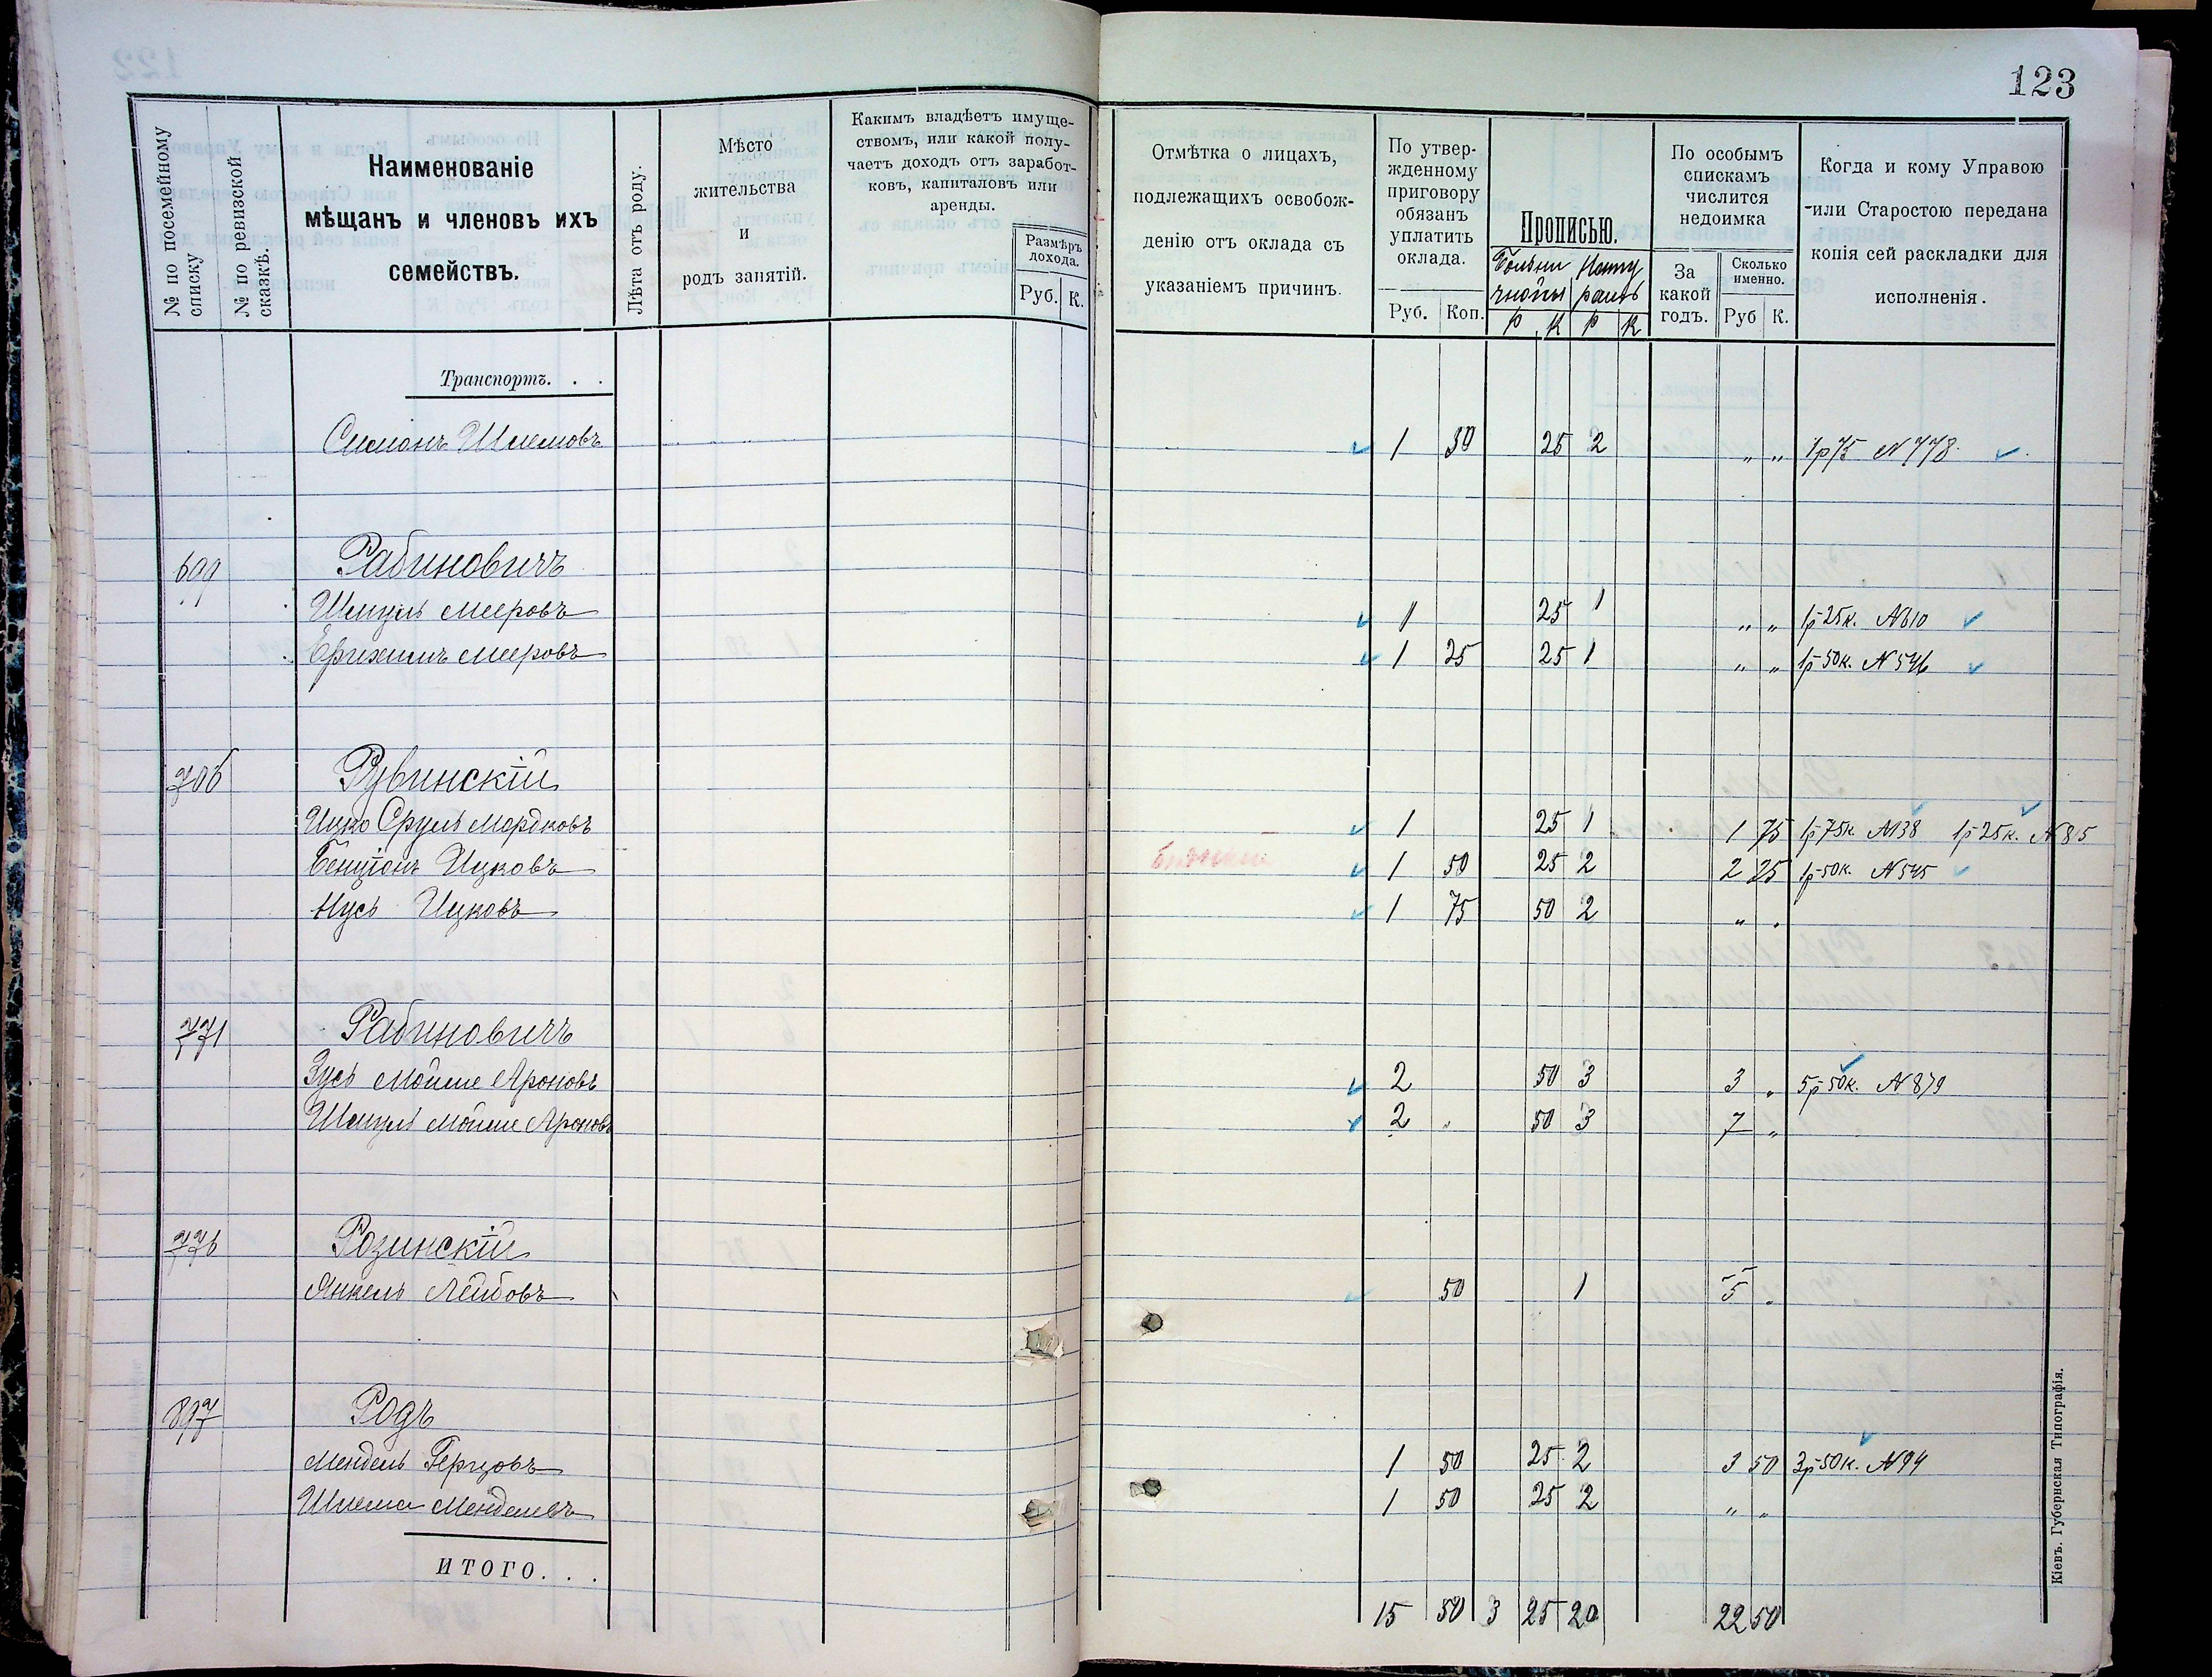 123
№ по посемейному списку
№ по ревизской сказкѣ.
Наименованіе
мѣщанъ и членовъ ихъ
семействъ.
Лѣта отъ роду.
Мѣсто
жительства
и
родъ занятій.
Какимъ владѣетъ имуще-
ствомъ, или какой полу-
чаетъ доходъ отъ заработ-
ковъ, капиталовъ или
аренды.
Размѣръ
дохода.
Руб. К.
Отмѣтка о лицахъ,
подлежащихъ освобож-
денію отъ оклада съ
указаніемъ причинъ.
По утвер-
жденному
приговору
обязанъ
уплатить
оклада.
Руб. Коп.
Прописью.
р к р к
По особымъ
спискамъ
числится
недоимка
За
какой
годъ.
Сколько
именно.
Руб К.
Когда и кому Управою
или Старостою передана
копія сей раскладки для
исполненія.
Транспортъ. . .
Симонъ Шлемовъ 1 50 25 2 „ „ 1р75 N 778
699 Рабиновичъ
Шмуль Мееровъ 1 25 1 „ „ 1р 25к. N 610
Ерихимъ Мееровъ 1 25 25 1 „ „ 1р 50к. N 546
706 Рувинскій
Ицко Сруль Мордковъ 1 25 1 1 75 1р 75к N 138 1р 25к. N 815
Бенціонъ Ицковъ 1 50 25 2 2 25 1р 50к. N 545
Нусь Ицковъ 1 75 50 2 „ „
771 Рабиновичъ
Зусь Мойше Ароновъ 2 50 3 3 „ 5р 50к. N 879
Шмуль Мойше Ароновъ 2 „ 50 3 7 „
776 Розинскій
Янкель Лейбовъ 50 1 5 „
897 Родъ
Мендель Герцовъ 1 50 25 2 3 50 3р 50к. N 94
Шлема Менделевъ 1 50 25 2 „ „
ИТОГО. . .
15 50 3 25 20 22 50
Кіевъ. Губернская Типографія.